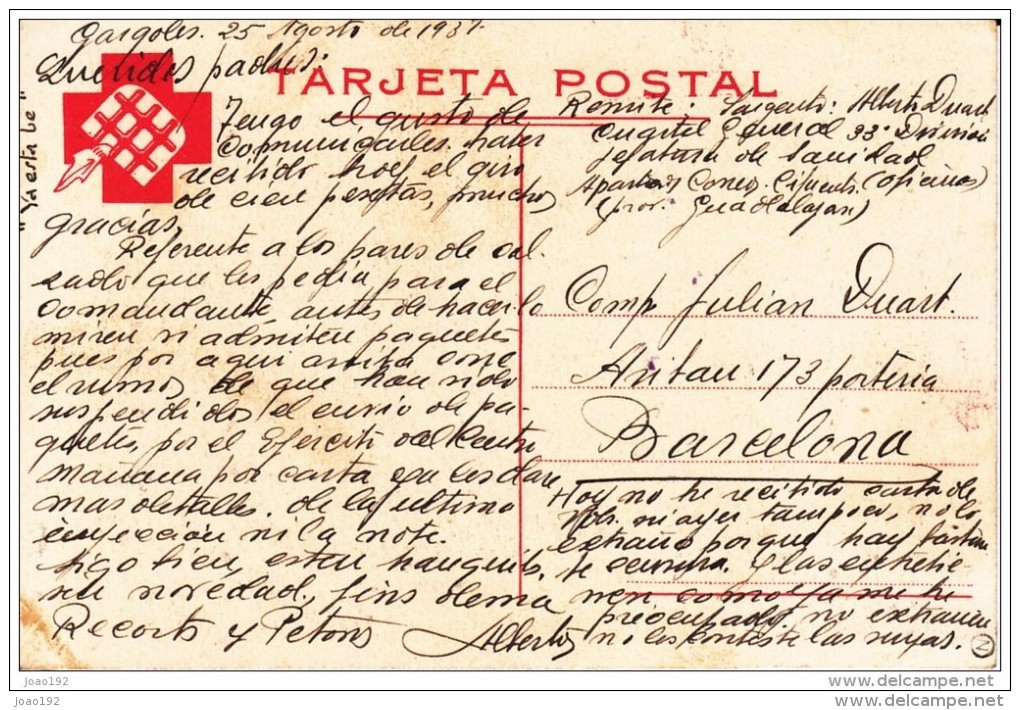 Gargoles. 25 Agosto de 1937.
Queridos padres:
TARJETA POSTAL
"Ya esta be"
Tengo el gusto de
comunicarles haber
recibido hoy el giro
de cien pesetas, muchas
gracias.
Referente a los pares de cal-
zado que les pedia para el
Comandante, antes de hacerlo
miren si admiten paquetes
pues por aqui arriba corre
el rumor de que han sido
suspendidos el envio de pa-
quetes, por el Ejército del Centro
mañana por carta que les dare
mas detalles. de la ultima
inyección ni la note.
Sigo bien, esten tranquilos,
sin novedad, fins dema
Recorts y Petons
Alberto
Remite: Sargento: Alberto Duart
Cuartel General 33ª Division
Jefatura de Sanidad
Apartado Correo. Cifuentes (oficinas)
(prov. Guadalajara)
Comp Julian Duart.
Aribau 173 porteria
Barcelona
Hoy no he recibido carta de
Vds. ni ayer tampoco, no lo
extraño porque hay
te censura. Y las entretie-
nen como ya me he
preocupado, no extrañen
no les conteste las suyas.
Z
joao192
joao192
delcampe.net
delcampe.net